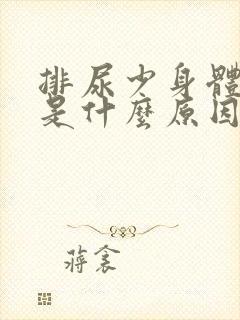 排尿少身體
是什麼原因
蔣衾